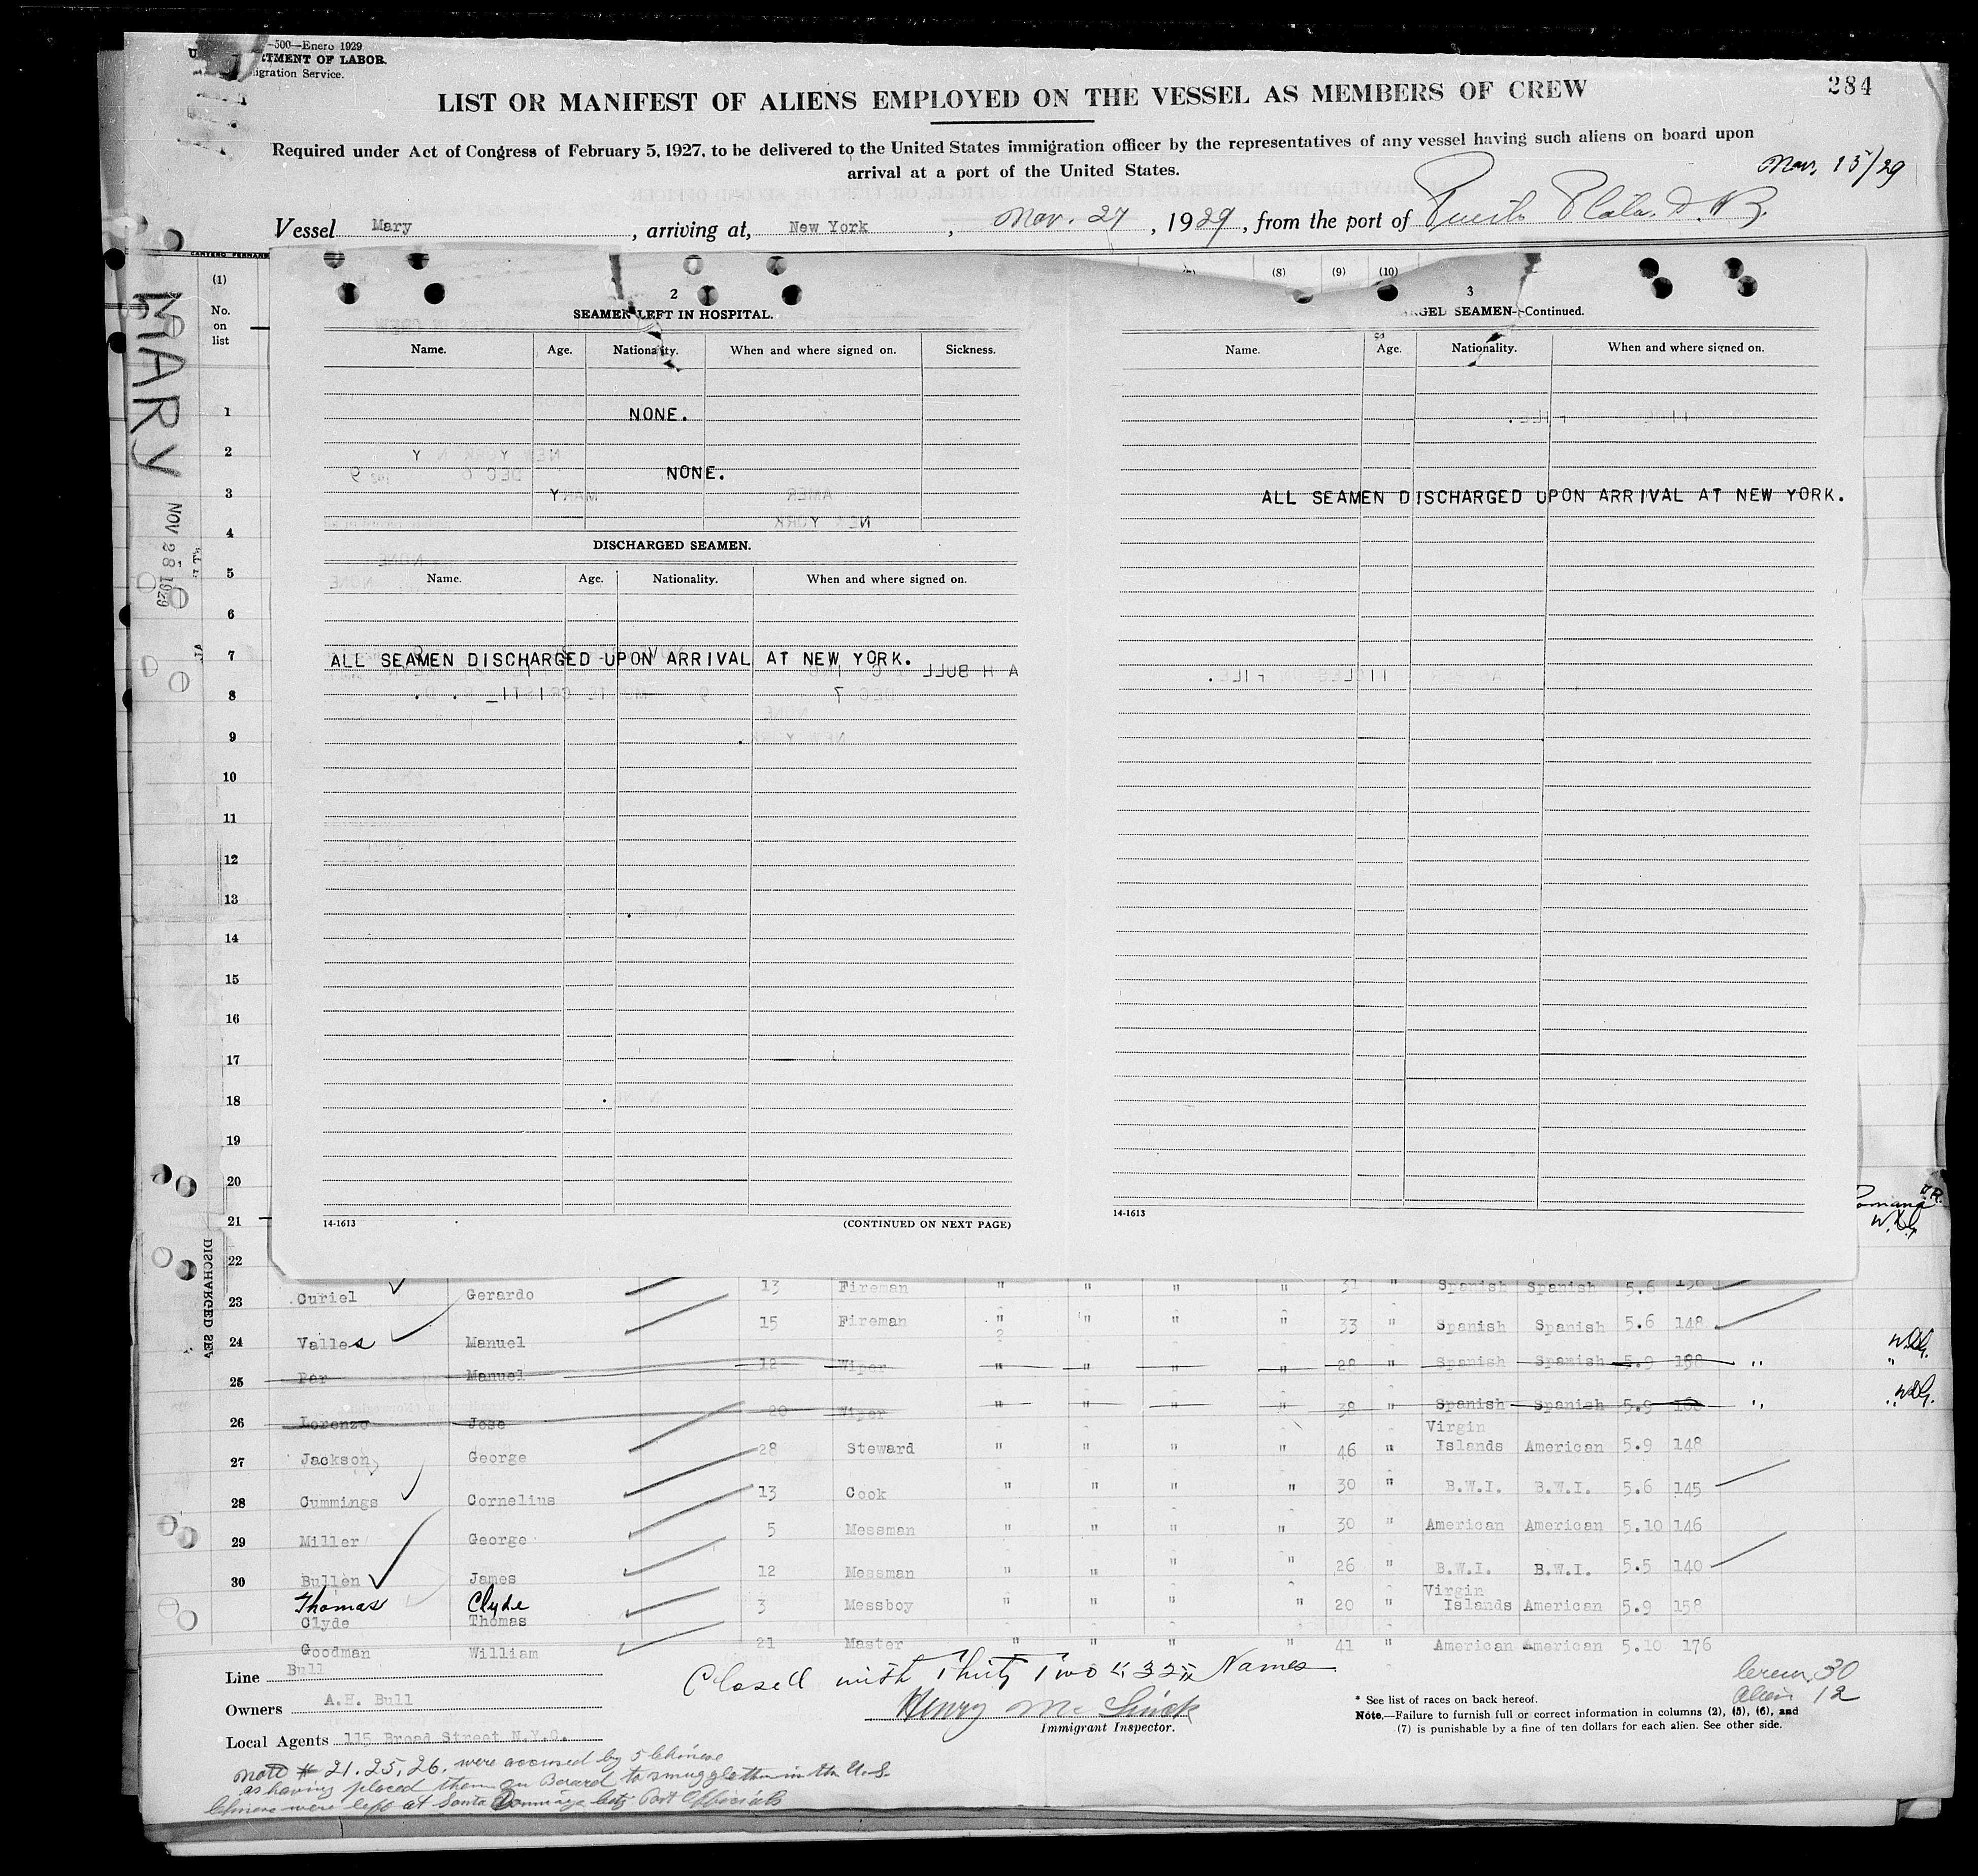 -500—Enero 1929
TMENT OF LABOR.
igration Service.
284
LIST OR MANIFEST OF ALIENS EMPLOYED ON THE VESSEL AS MEMBERS OF CREW
Required under Act of Congress of February 5, 1927, to be delivered to the United States immigration officer by the representatives of any vessel having such aliens on board upon
arrival at a port of the United States.
Nov. 15/29
Vessel Mary, arriving at, New York, Nov. 27, 1929, from the port of Puerto Plata, D. R.
MARY
NOV 28 1929
DISCHARGED SEA
(1) (8) (9) (10)
No.
on
list
2
SEAMEN LEFT IN HOSPITAL.
Name. Age. Nationality. When and where signed on. Sickness.
NONE.
NONE.
DISCHARGED SEAMEN.
Name. Age. Nationality. When and where signed on.
ALL SEAMEN DISCHARGED UPON ARRIVAL AT NEW YORK.
14-1613 (CONTINUED ON NEXT PAGE)
3
RGED SEAMEN—Continued.
Name. Age. Nationality. When and where signed on.
ALL SEAMEN DISCHARGED UPON ARRIVAL AT NEW YORK.
14-1613
1
2
3
4
5
6
7
8
9
10
11
12
13
14
15
16
17
18
19
20
21
22
23 Curiel Gerardo 13 Fireman " " " " 31 " Spanish Spanish 5.6 150
24 Valles Manuel 15 Fireman " " " " 33 " Spanish Spanish 5.6 148
25 Par Manuel 12 Wiper " " " " 28 " Spanish Spanish 5.9 198 "
26 Lorenzo Jose 20 Wiper " " " " 38 " Spanish Spanish 5.9 "
27 Jackson George 28 Steward " " " " 46 " Virgin Islands American 5.9 148
28 Cummings Cornelius 13 Cook " " " " 30 " B.W.I. B.W.I. 5.6 145
29 Miller George 5 Messman " " " " 30 " American American 5.10 146
30 Bullen James 12 Messman " " " " 26 " B.W.I. B.W.I. 5.5 140
Thomas Clyde
Clyde Thomas 3 Messboy " " " " 20 " Virgin Islands American 5.9 158
Goodman William 21 Master " " " " 41 " American American 5.10 176
Line Bull
Owners A.H. Bull
Local Agents 115 Broad Street N.Y.C.
Closed with Thirty Two (32) Names
Henry Mc
Immigrant Inspector.
Crew 30
Alien 12
* See list of races on back hereof.
Note.—Failure to furnish full or correct information in columns (2), (5), (6), and
(7) is punishable by a fine of ten dollars for each alien. See other side.
Note # 21. 25, 26. were accused by 5 Chinese
as having placed them on Board to smuggle them in the U.S.
Chinese were left at Santo Domingo City Port Officials